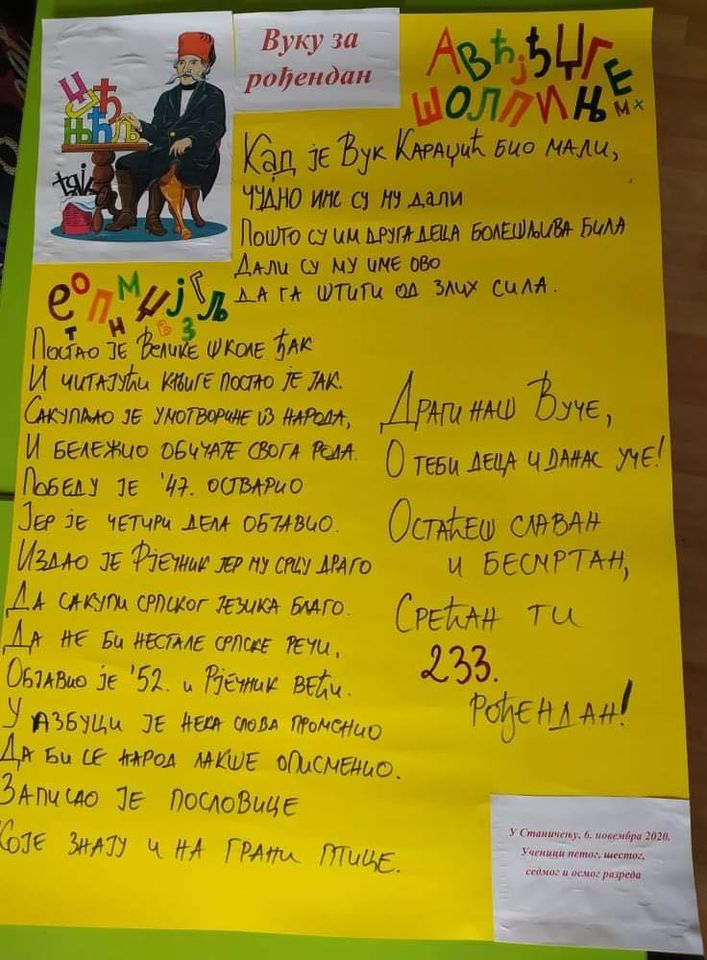 Вуку за
рођендан
АВЋЈЂЏГЕ
ШОЛПИЊМХ
Кад је Вук Караџић био мали,
чудно име су му дали
Пошто су им друга деца болешљива била
Дали су му име ово
да га штити од злих сила.
Постао је Велике школе ђак
И читајући књиге постао је јак.
Сакупљао је умотворине из народа,
И бележио обичаје свога рода.
Победу је '47. остварио
Јер је четири дела објавио.
Издао је Рјечник јер му срцу драго
Да сакупи српског језика благо.
Да не би нестале српске речи,
Објавио је '52. и Рјечник већи.
У азбуци је нека слова променио
Да би се народ лакше описменио.
Записао је пословице
Које знају и на грани птице.
Драги наш Вуче,
О теби деца и данас уче!
Остаћеш славан
и бесмртан,
Срећан ти
233.
Рођендан!
У Станичењу, 6. новембра 2020.
Ученици петог, шестог,
седмог и осмог разреда